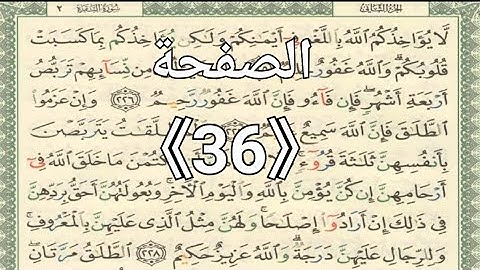 الجزء الثاني سورة البقرة ٢
لَّا يُؤَاخِذُكُمُ ٱللَّهُ بِٱللَّغْوِ أَيْمَٰنِكُمْ وَلَٰكِن يُؤَاخِذُكُم بِمَا كَسَبَتْ
قُلُوبُكُمْ وَٱللَّهُ غَفُورٌ مِن نِّسَآئِهِمْ تَرَبُّصُ
الصفحة
أَرْبَعَةِ أَشْهُرٍ فَإِن فَآءُو فَإِنَّ ٱللَّهَ غَفُورٌ رَّحِيمٌ ﴿٢٢٦﴾ وَإِنْ عَزَمُوا۟
ٱلطَّلَٰقَ فَإِنَّ ٱللَّهَ سَمِيعٌ يَتَرَبَّصْنَ
《36》
بِأَنفُسِهِنَّ ثَلَٰثَةَ قُرُوٓءٍ يَكْتُمْنَ مَا خَلَقَ ٱللَّهُ فِىٓ
أَرْحَامِهِنَّ إِن كُنَّ يُؤْمِنَّ بِٱللَّهِ وَٱلْيَوْمِ ٱلْءَاخِرِ وَبُعُولَتُهُنَّ أَحَقُّ بِرَدِّهِنَّ
فِى ذَٰلِكَ إِنْ أَرَادُوٓا۟ إِصْلَٰحًا وَلَهُنَّ مِثْلُ ٱلَّذِى عَلَيْهِنَّ بِٱلْمَعْرُوفِ
وَلِلرِّجَالِ عَلَيْهِنَّ دَرَجَةٌ وَٱللَّهُ عَزِيزٌ حَكِيمٌ ﴿٢٢٨﴾ ٱلطَّلَٰقُ مَرَّتَانِ